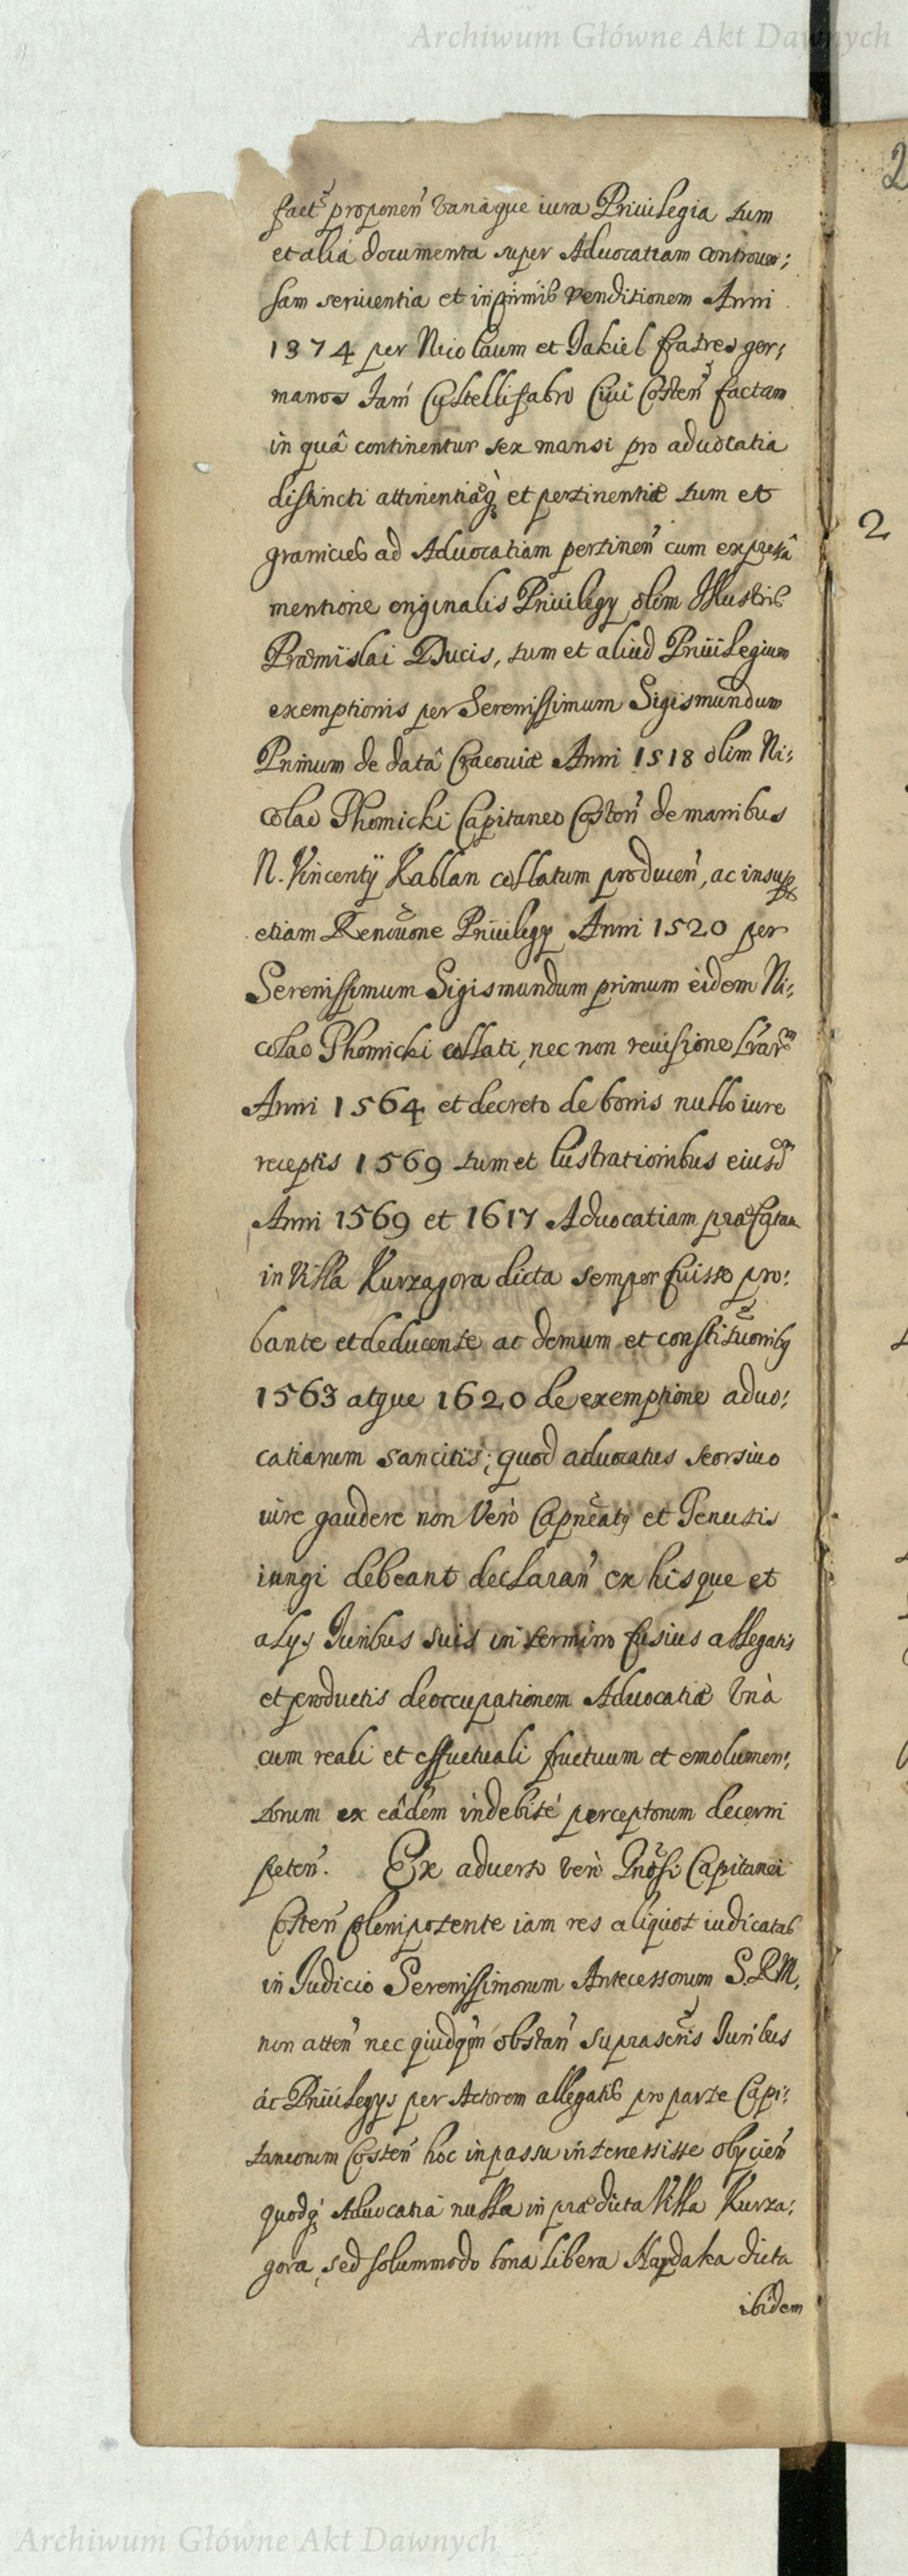 Archiwum Główne Akt Dawnych
fact̃ proponen̄ variaque iura Priuilegia tum
et alia documenta super Aduocatiam controuer;
sam seruientia et inprimis venditionem Anni
1374 per Nicolaum et Jakiel fratres ger;
manos Jam̄ Cultellifabro Ciui Costen̄ factam
in quâ continentur sex mansi pro aduocatia
distincti attinentiæq; et pertinentiæ tum et
granicies ad Aduocatiam pertinen̄ cum expressâ
mentione originalis Priuilegy olim Illustris
Præmislai Ducis, tum et aliud Priuilegium
exemptionis per Serenissimum Sigismundum
Primum de datâ Cracouiæ Anni 1518 olim Ni;
colao Phomicki Capitaneo Costen̄ de manibus
N. Vincentÿ Kablan collatum producen̄, ac insup
etiam Renouõne Priuilegy Anni 1520 per
Serenissimum Sigismundum primum eidem Ni;
colao Phomicki collati, nec non reuisione Lr̄ar̄m
Anni 1564 et decreto de bonis nullo iure
receptis 1569 tum et lustrationibus eiusdm
Anni 1569 et 1617 Aduocatiam præfatam
in Villa Kurzagora dicta semper fuisse pro:
bante et deducente ac demum et constituõnibq
1563 atque 1620 de exemptione aduo:
catiarum sancitis; quod aduocatus seorsiuo
iure gaudere non verò Capneãty et Tenutis
iungi debeant declaran̄ ex hisque et
alys Juribus suis in termino fusius allegatis
et productis deoccupationem Aduocatiæ vnà
cum reali et effectuali fructuum et emolumen:
torum ex eâdem indebité perceptorum decerni
peten̄. Ex aduerso verò Gnõsi Capitanei
Costen̄ plenipotente iam res aliquot iudicatas
in Judicio Serenissimorum Antecessorum S.R.M.
non atten̄ nec quidq̄m obstan̄ suprascr̃is Juribus
ác Priuilegys per Actorem allegatis pro parte Capi:
taneorum Costen̄ hoc in passu interessisse obycien̄
quodq; Aduocatia nulla in prædicta Villa Kurza:
gora, sed solummodo bona libera Haydaka dicta
ibidem
2
Archiwum Główne Akt Dawnych